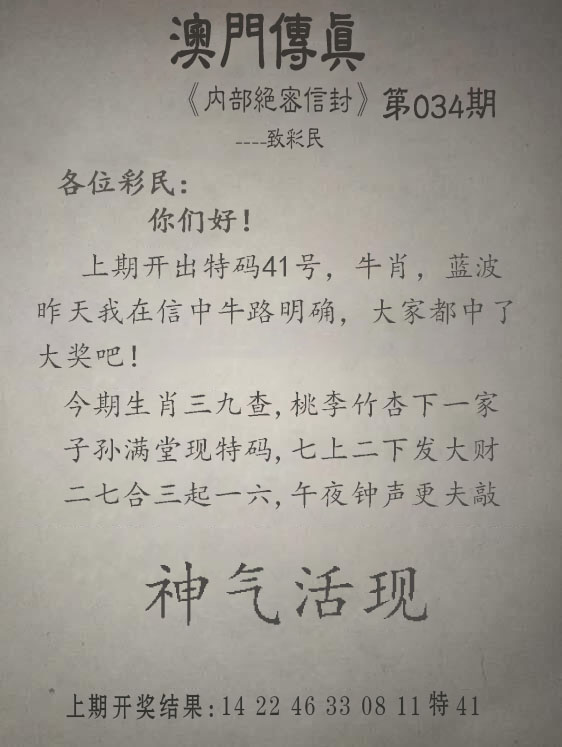 澳門傳眞
《内部絕密信封》第034期
----致彩民
各位彩民：
你们好！
上期开出特码41号，牛肖，蓝波
昨天我在信中牛路明确，大家都中了
大奖吧！
今期生肖三九查,桃李竹杏下一家
子孙满堂现特码,七上二下发大财
二七合三起一六,午夜钟声更夫敲
神气活现
上期开奖结果:14 22 46 33 08 11 特 41